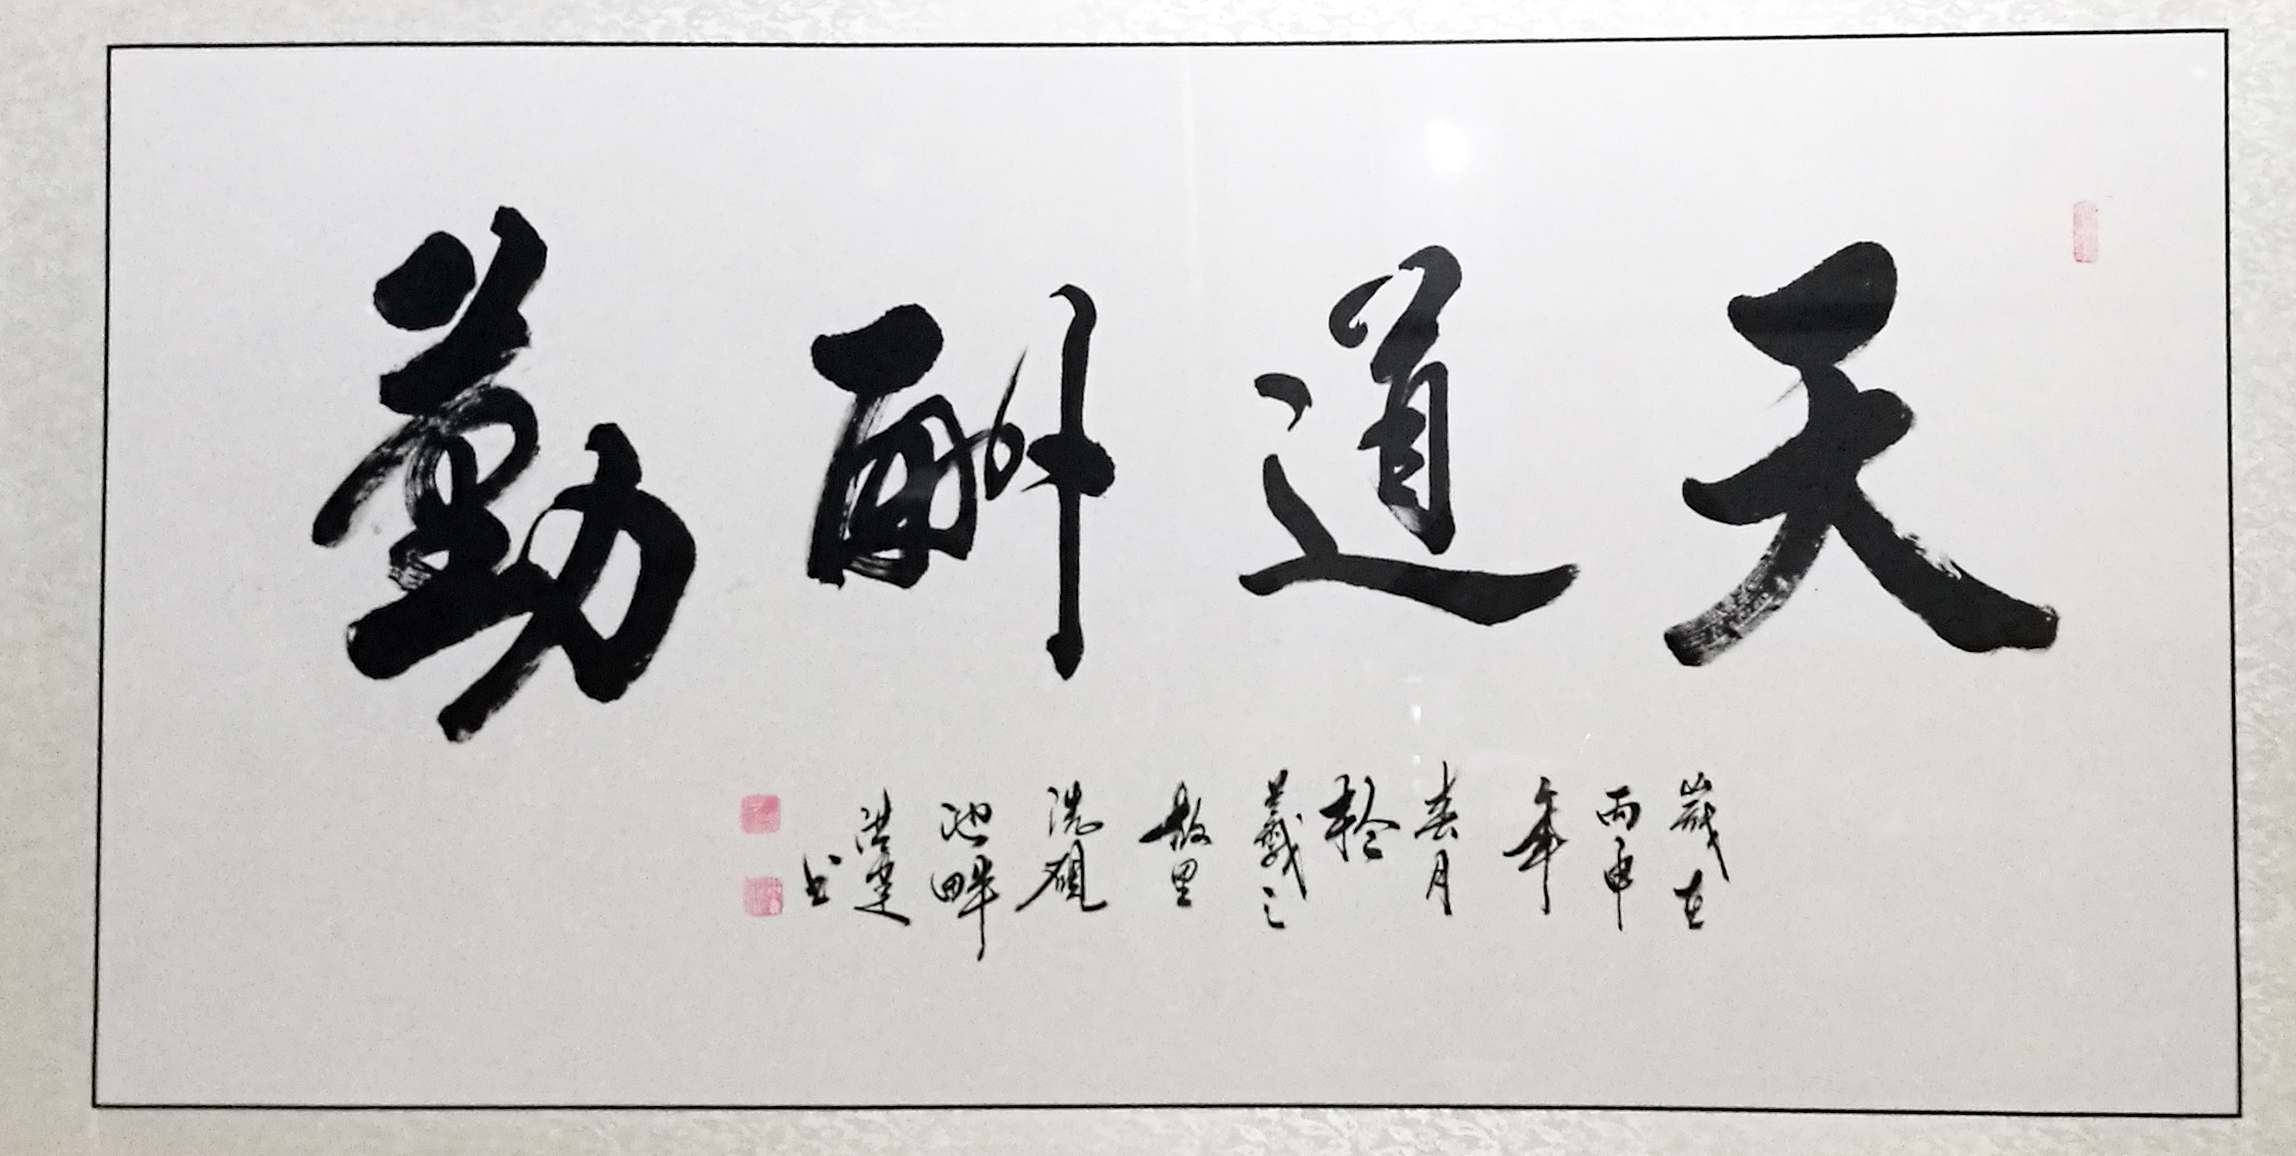 天道酬勤
歲在
丙申
年
春月
於
羲之
故里
洗硯
池畔
洪運
书